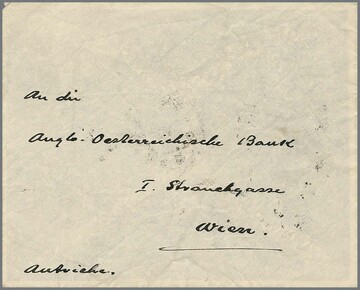 An die
Anglo-Oesterreichische Bank
I. Strauchgasse
Wien.
Autriche.